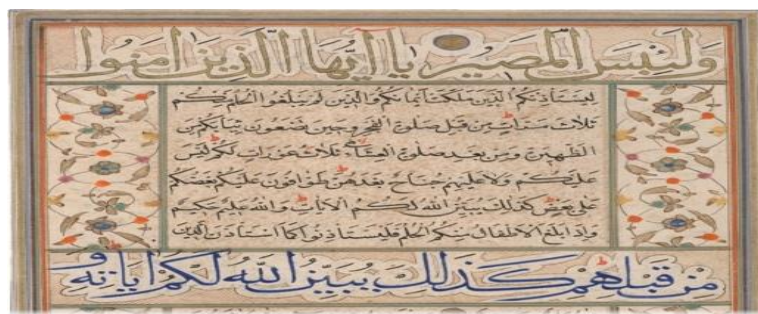 وَلَبِئْسَ الْمَصِيرُ يَا أَيُّهَا الَّذِينَ آمَنُوا
لِيَسْتَأْذِنْكُمُ الَّذِينَ مَلَكَتْ أَيْمَانُكُمْ وَالَّذِينَ لَمْ يَبْلُغُوا الْحُلُمَ مِنْكُمْ
ثَلَاثَ مَرَّاتٍ مِنْ قَبْلِ صَلٰوةِ الْفَجْرِ وَحِينَ تَضَعُونَ ثِيَابَكُمْ مِنَ
الظَّهِيرَةِ وَمِنْ بَعْدِ صَلٰوةِ الْعِشَاءِ ثَلَاثُ عَوْرَاتٍ لَكُمْ لَيْسَ
عَلَيْكُمْ وَلَا عَلَيْهِمْ جُنَاحٌ بَعْدَهُنَّ طَوَّافُونَ عَلَيْكُمْ بَعْضُكُمْ
عَلَى بَعْضٍ كَذَلِكَ يُبَيِّنُ اللهُ لَكُمُ الْآيَاتِ وَاللهُ عَلِيمٌ حَكِيمٌ
وَإِذَا بَلَغَ الْأَطْفَالُ مِنْكُمُ الْحُلُمَ فَلْيَسْتَأْذِنُوا كَمَا اسْتَأْذَنَ الَّذِينَ
مِنْ قَبْلِهِمْ كَذَلِكَ يُبَيِّنُ اللهُ لَكُمْ آيَاتِهِ وَ